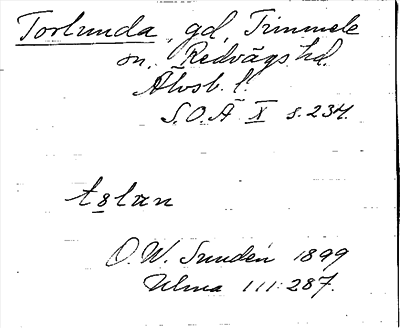 Torlunda, gd, Timmele
sn, Redvägs hd.
Älvsb. l.
S.O.Ä X s. 234.
O.W. Sundén 1899
Ulma 111:287.